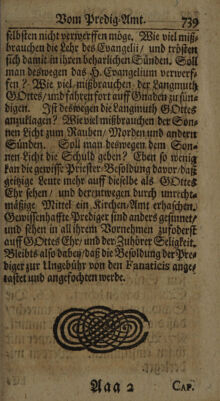 Vom Predig-Amt. 739
selbsten nicht verwerffen möge. Wie viel miß-
brauchen die Lehr des Evangelii/ und trösten
sich damit in ihren beharlichen Sünden. Soll
man deswegen das H. Evangelium verwerf-
fen? Wie viel mißbrauchen der Langmuth
GOttes/ und fahren fort auff Gnaden zu sün-
digen. Ist deswegen die Langmuth GOttes
anzuklagen? Wie viel mißbrauchen der Son-
nen Licht zum Rauben/ Morden und andern
Sünden. Soll man deswegen dem Son-
nen-Licht die Schuld geben? Eben so wenig
kan die gewisse Priester-Besoldung davor/ daß
geitzige Leute mehr auff dieselbe als GOttes
Ehr sehen/ und derentwegen durch unrecht-
mäßige Mittel ein Kirchen-Amt erhaschen.
Gewissenhaffte Prediger sind anders gesinnet/
und sehen in all ihrem Vornehmen zuforderst
auff GOttes Ehr/ und der Zuhörer Seligkeit.
Bleibts also dabey/ daß die Besoldung der Pre-
diger zur Ungebühr von den Fanaticis ange-
tastet und angefochten werde.
Aaa 2 CAP.